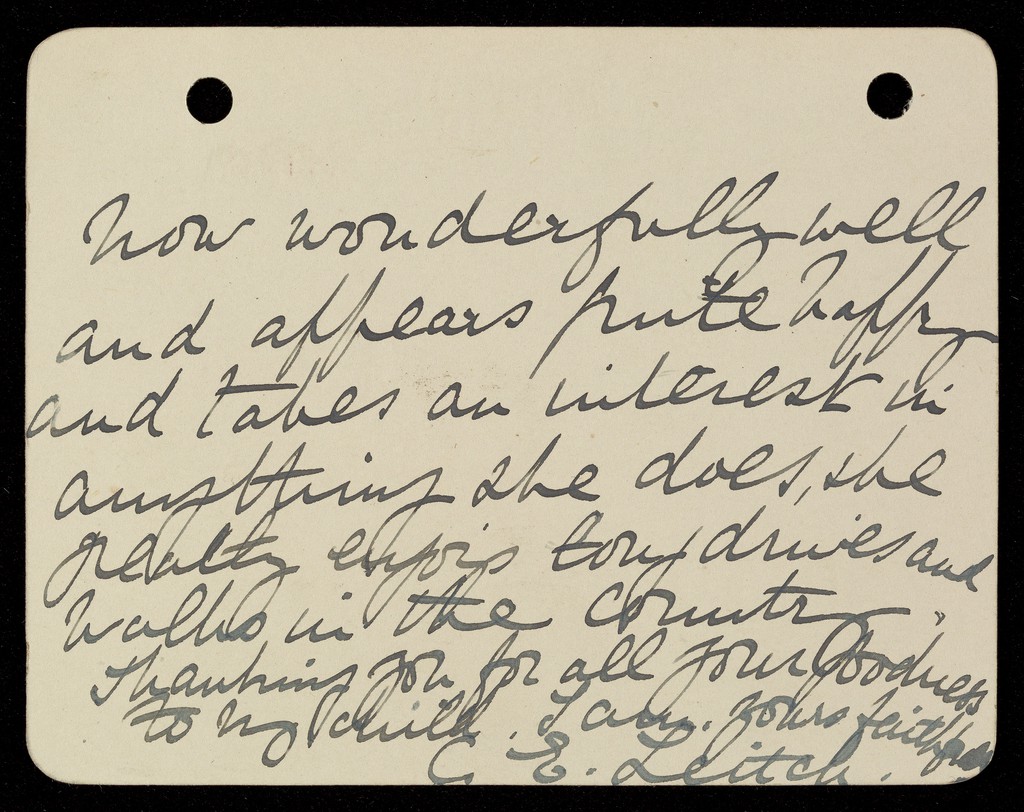 now wonderfully well
and appears quite happy
and takes an interest in
anything she does, she
greatly enjoys long drives and
walks in the country.
Thanking you for all your goodness
to my child. I am. yours faithfully
C. E. Leitch.